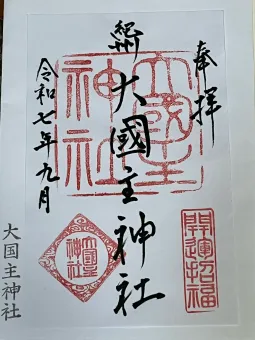 奉拝
紀州 大國主神社
令和七年九月
大國主神社
開運招福
大國主神社
大国主神社